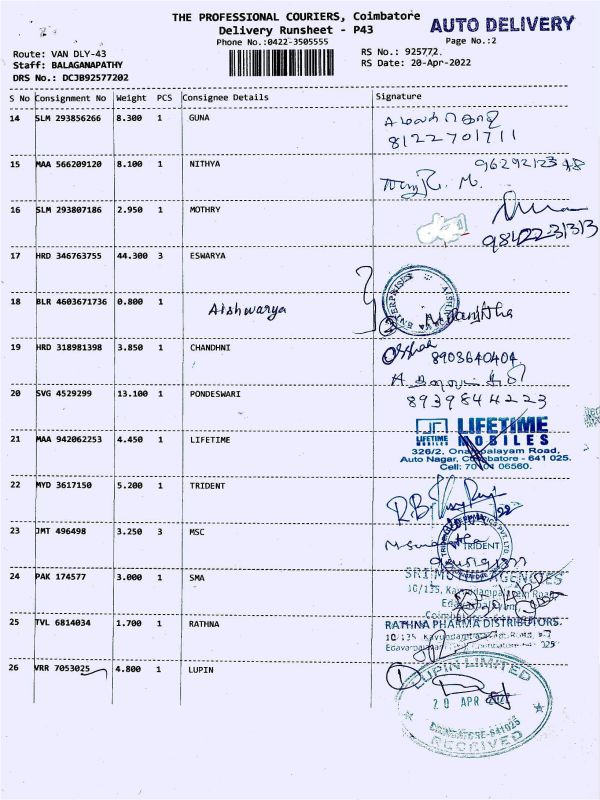 THE PROFESSIONAL COURIERS, Coimbatore
AUTO DELIVERY
Delivery Runsheet - P43
Phone No.:0422-3505555
Page No.:2
Route: VAN DLY-43
Staff: BALAGANAPATHY
DRS No.: DCJB92577202
RS No.: 925772.
RS Date: 20-Apr-2022
S No Consignment No Weight PCS Consignee Details Signature
14 SLM 293856266 8.300 1 GUNA
8122701711
15 MAA 566209120 8.100 1 NITHYA
16 SLM 293807186 2.950 1 MOTHRY
17 HRD 346763755 44.300 3 ESWARYA
18 BLR 4603671736 0.800 1 Aishwarya
ENTERPRISES
19 HRD 318981398 3.850 1 CHANDHNI
8903640404
20 SVG 4529299 13.100 1 PONDESWARI
8939844223
21 MAA 942062253 4.450 1 LIFETIME
LIFETIME MOBILES
LIFETIME MOBILES
326/2, Onampalayam Road,
Auto Nagar, Coimbatore - 641 025.
22 MYD 3617150 5.200 1 TRIDENT
23 JMT 496498 3.250 3 MSC
TRIDENT
24 PAK 174577 3.000 1 SMA
25 TVL 6814034 1.700 1 RATHNA
RATHNA PHARMA DISTRIBUTORS.
26 VRR 7053025 4.800 1 LUPIN
LUPIN LIMITED
20 APR
COIMBATORE-641025
RECEIVED